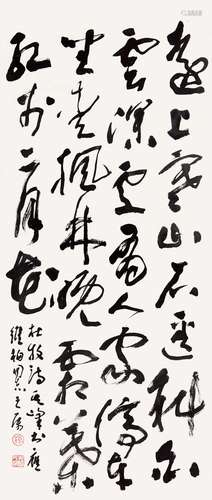 遠上寒山石逕斜白
雲深處有人家停車
坐愛楓林晚霜葉
紅於二月花
杜牧詩 書應
維柏 兄之屬